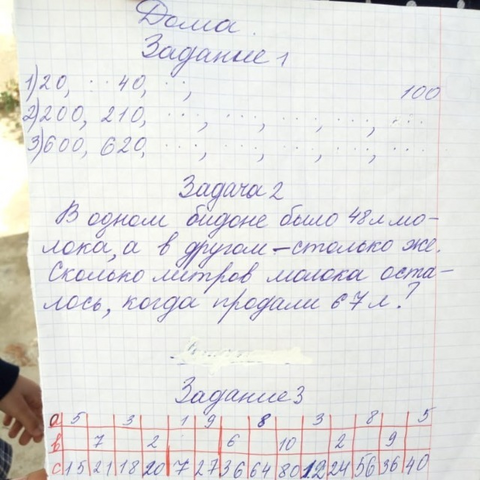 Дома.
Задание 1
1) 20, ... 40, ..., 100
2) 200, 210, ..., ..., ..., ..., ...
3) 600, 620, ..., ..., ..., ..., ...
Задача 2
В одном бидоне было 48 л мо-
лока, а в другом – столько же.
Сколько литров молока оста-
лось, когда продали 67 л?
Задание 3
а 5 3 1 9 8 3 8 5
в 7 2 6 10 2 9
с 15 21 18 20 7 27 36 64 80 12 24 56 36 40